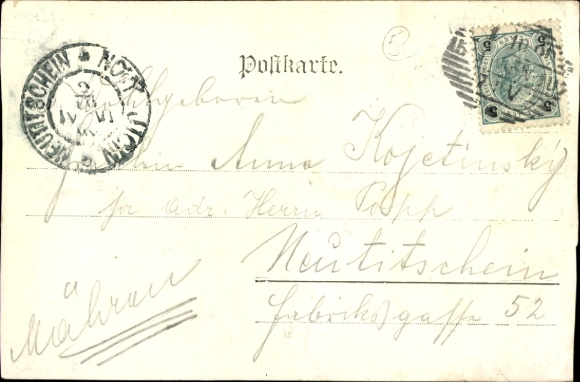 Postkarte.
Wohlgeboren
Fräulein Anna Kojetinský
per adr. Herrn Popp
Neutitschein
Fabriksgasse 52
Mähren
NEUTITSCHEIN * NOVÝ JIČÍN
5 5